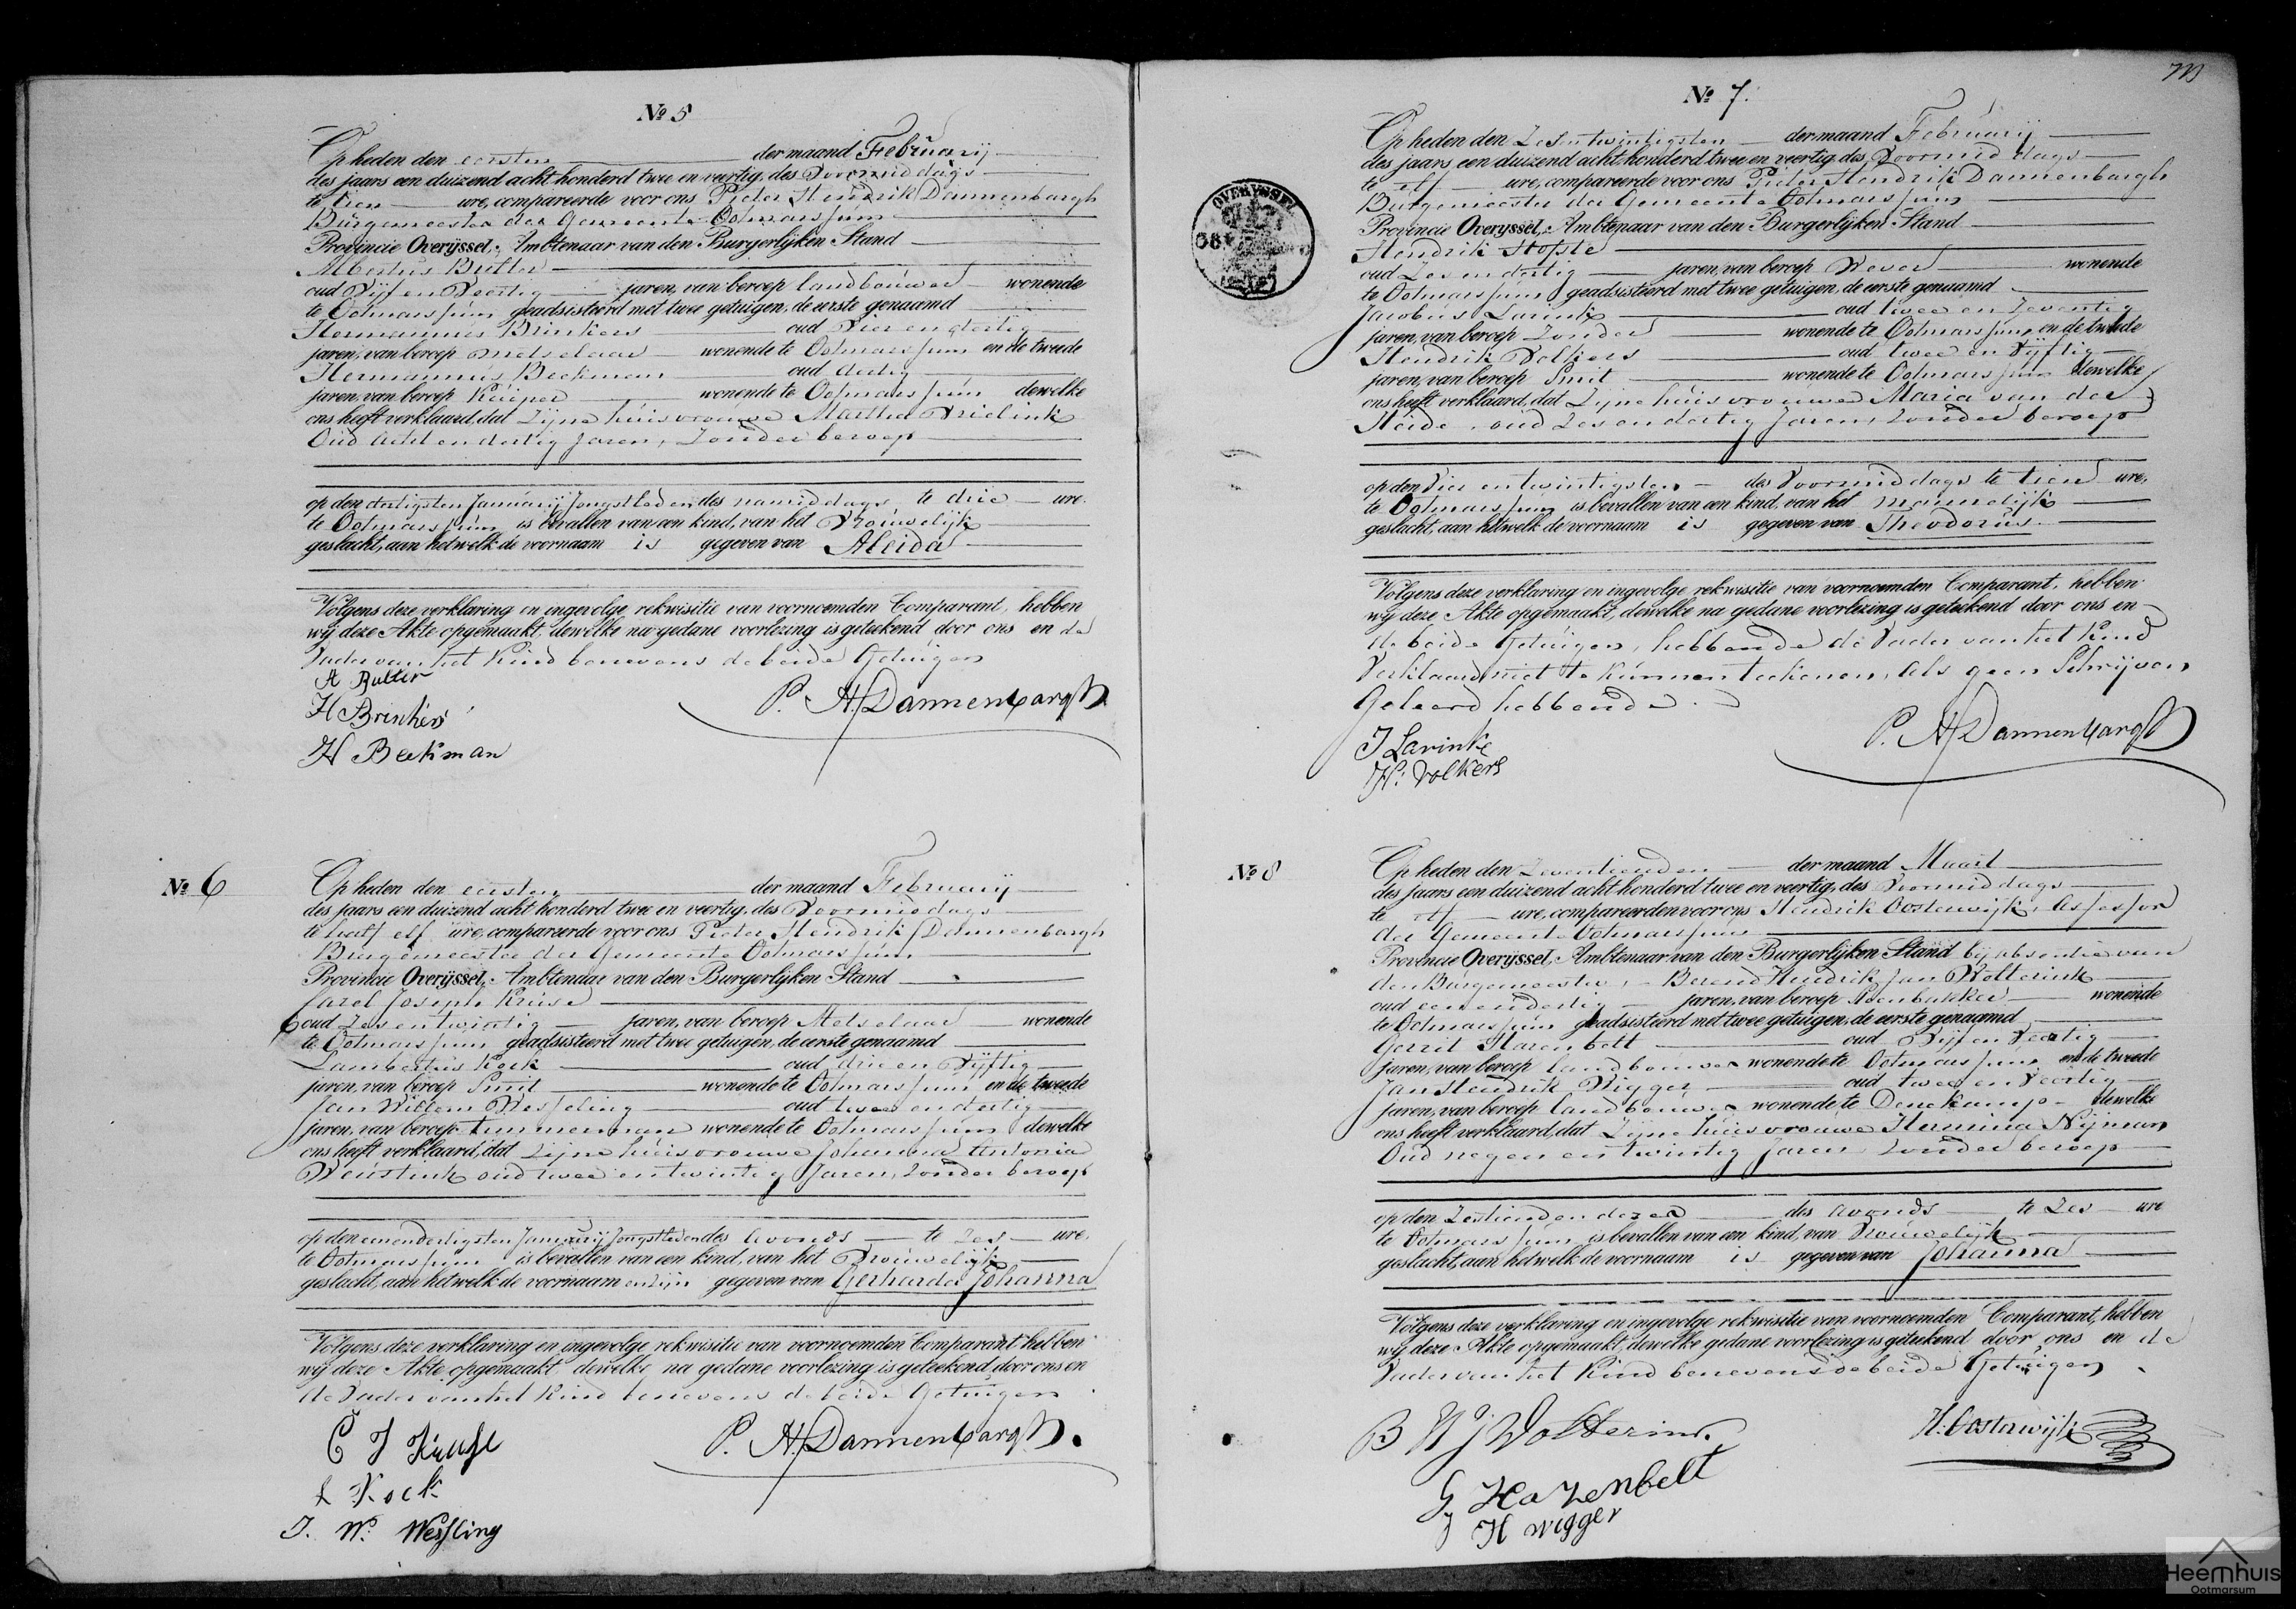 № 5
Op heden den eersten der maand Februarij
des jaars een duizend acht honderd twee en veertig, des Voormiddags
te tien ure, compareerde voor ons Pieter Hendrik Dannenbargh
Burgemeester der Gemeente Ootmarssum
Provincie Overijssel, Ambtenaar van den Burgerlijken Stand
Albertus Bulter
oud Vijf en Veertig jaren, van beroep landbouwer wonende
te Ootmarssum geadsisteerd met twee getuigen, de eerste genaamd
Hermannus Brinkers oud Vier en dertig
jaren, van beroep metselaar wonende te Ootmarssum en de tweede
Hermannus Beekman oud dertig
jaren, van beroep Kuiper wonende te Ootmarssum dewelke
ons heeft verklaard, dat Zijne huisvrouwe Martha Vrielink
Oud acht en dertig Jaren, Zonder beroep
op den dertigsten Januarij Jongstleden des namiddags te drie ure.
te Ootmarssum is bevallen van een kind, van het Vrouwelijk
geslacht, aan hetwelk de voornaam is gegeven van Aleida
Volgens deze verklaring en ingevolge rekwisitie van voornoemden Comparant, hebben
wij deze Akte opgemaakt, dewelke na gedane voorlezing is geteekend door ons en de
Vader van het Kind benevens de beide Getuigen
A Bulter
P. H. Dannenbargh
H Brinkers
H Beekman
№ 6
Op heden den eersten der maand Februarij
des jaars een duizend acht honderd twee en veertig, des Voormiddags
te half elf ure, compareerde voor ons Pieter Hendrik Dannenbargh
Burgemeester der Gemeente Ootmarssum
Provincie Overijssel, Ambtenaar van den Burgerlijken Stand
Carel Joseph Kruse
oud Zes en twintig jaren, van beroep Metselaar wonende
te Ootmarssum geadsisteerd met twee getuigen, de eerste genaamd
Lambertus Kock oud drie en Vijftig
jaren, van beroep Smit wonende te Ootmarssum en de tweede
Jan Willem Wesseling oud twee en dertig
jaren, van beroep timmerman wonende te Ootmarssum dewelke
ons heeft verklaard, dat Zijne huisvrouwe Johanna Antonia
Weustink oud twee en twintig Jaren, Zonder beroep
op den eenendertigsten Januarij Jongstleden des avonds te Zes ure.
te Ootmarssum is bevallen van een kind, van het Vrouwelijk
geslacht, aan hetwelk de voornaam en zijn gegeven van Gerharda Johanna
Volgens deze verklaring en ingevolge rekwisitie van voornoemden Comparant hebben
wij deze Akte opgemaakt dewelke na gedane voorlezing is geteekend door ons en
de Vader van het Kind benevens de beide Getuigen
C J Kruse
P. H. Dannenbargh
L Kock
J. W. Wessling
№ 7.
Op heden den Zesentwintigsten der maand Februarij
des jaars een duizend acht honderd twee en veertig, des Voormiddags
te elf ure, compareerde voor ons Pieter Hendrik Dannenbargh
Burgemeester der Gemeente Ootmarssum
Provincie Overijssel, Ambtenaar van den Burgerlijken Stand
Hendrik Hofste
oud Zes en dertig jaren, van beroep Wever wonende
te Ootmarssum geadsisteerd met twee getuigen, de eerste genaamd
Jacobus Larink oud twee en Zeventig
jaren, van beroep Zonder wonende te Ootmarssum en de tweede
Hendrik Volkers oud twee en Vijftig
jaren, van beroep Smit wonende te Ootmarssum dewelke
ons heeft verklaard, dat Zijne huisvrouwe Maria van der
Heide, oud Zes en dertig Jaren, Zonder beroep
op den Vier en twintigsten des Voormiddags te tien ure,
te Ootmarssum is bevallen van een kind, van het mannelijk
geslacht, aan hetwelk de voornaam is gegeven van Theodorus.
Volgens deze verklaring en ingevolge rekwisitie van voornoemden Comparant, hebben
wij deze Akte opgemaakt, dewelke na gedane voorlezing is geteekend door ons en
de beide Getuigen, hebbende de Vader van het Kind
Verklaard niet te kunnen teekenen, als geen Schrijven
Geleerd hebbende.
J Larink
P. H. Dannenbargh
H: Volkers
OVERYSSEL
№ 8
Op heden den Zeventienden der maand Maart
des jaars een duizend acht honderd twee en veertig, des Voormiddags
te elf ure, compareerden voor ons Hendrik Oosterwijk, Assessor
der Gemeente Ootmarssum
Provincie Overijssel, Ambtenaar van den Burgerlijken Stand bij absentie van
den Burgemeester, Berend Hendrik Jan Wolterink
oud een en dertig jaren, van beroep Steenbakker wonende
te Ootmarssum geadsisteerd met twee getuigen, de eerste genaamd
Gerrit Hazenbelt oud Vijf en Veertig
jaren, van beroep landbouwer wonende te Ootmarssum en de tweede
Jan Hendrik Wigger oud twee en Veertig
jaren, van beroep landbouwer wonende te Denekamp dewelke
ons heeft verklaard, dat Zijne huisvrouwe Hermina Nijman
Oud negen en twintig Jaren Zonder beroep
op den Zestienden dezer des avonds te Zes ure
te Ootmarssum is bevallen van een kind, van Vrouwelijk
geslacht, aan hetwelk de voornaam is gegeven van Johanna
Volgens deze verklaring en ingevolge rekwisitie van voornoemden Comparant, hebben
wij deze Akte opgemaakt, dewelke gedane voorlezing is geteekend door ons en de
Vader van het Kind benevens de beide Getuigen
B H J Wolterink
H. Oosterwijk
G Hazenbelt
J H Wigger
Heemhuis
Ootmarsum